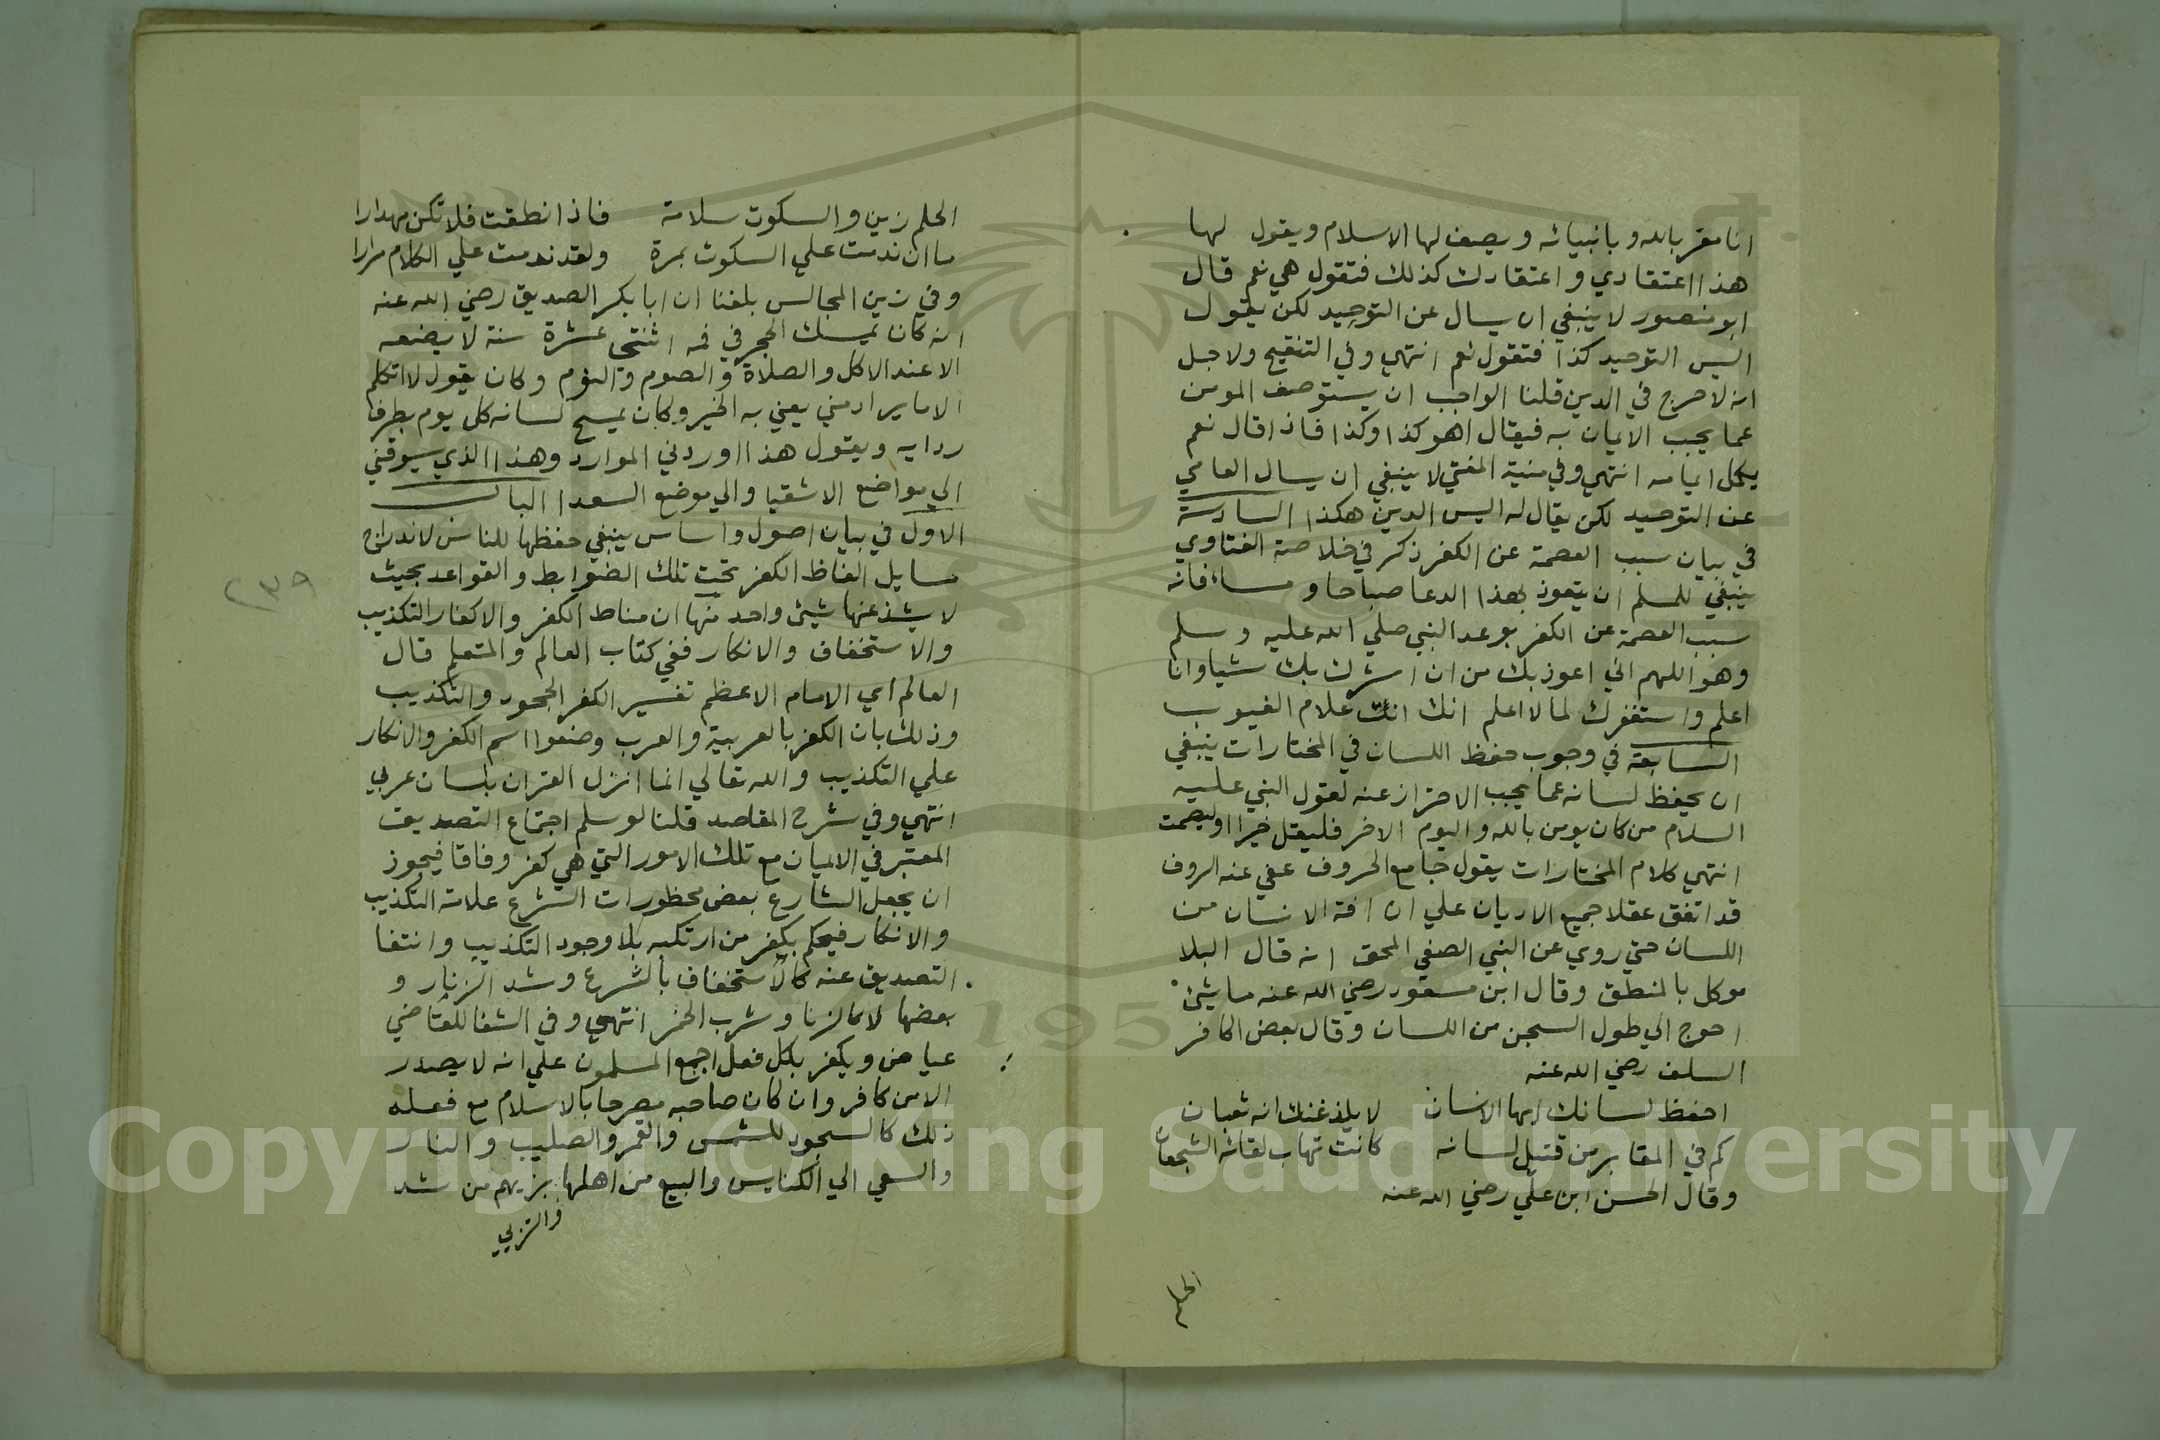 انا مقر بالله وبانبيائه ويصف لها الاسلام ويقول لها
هذا اعتقادي واعتقادك كذلك فتقول هي نعم قال
ابو منصور لا ينبغي ان يسال عن التوحيد لكن يقول
اليس التوحيد كذا فتقول نعم انتهي وفي التنقيح ولاجل
انه لا حرج في الدين قلنا الواجب ان يستوصف المومن
عما يجب الايمان به فيقال اهو كذا وكذا فاذا قال نعم
يكمل ايمامه انتهي وفي منية المفتي لا ينبغي ان يسال العامي
عن التوحيد لكن يقال له اليس الدين هكذا السادسة
في بيان سبب العصمة عن الكفر ذكر في خلاصة الفتاوي
ينبغي للمسلم ان يتعوذ بهذا الدعا صباحا ومساء فانه
سبب العصمة عن الكفر بوعد النبي صلي الله عليه وسلم
وهو اللهم اني اعوذ بك من ان اشرك بك شيا وانا
اعلم واستغفرك لما لا اعلم انك انت علام الغيوب
السابعة في وجوب حفظ اللسان في المختارات ينبغي
ان يحفظ لسانه عما يجب الاحتراز عنه لقول النبي عليه
السلام من كان يومن بالله واليوم الاخر فليقل خيرا او ليصمت
انتهي كلام المختارات يقول جامع الحروف عفي عنه الروف
قد اتفق عقلا جميع الاديان علي ان افة الانسان من
اللسان حتي روي عن النبي الصفي المحق انه قال البلا
موكل بالمنطق وقال ابن مسعود رضي الله عنه ما شيئ
احوج الي طول السجن من اللسان وقال بعض اكابر
السلف رضي الله عنه
احفظ لسانك ايها الانسان لا يلدغنك انه ثعبان
كم في المقابر من قتيل لسانه كانت تهاب لقائه الشجعان
وقال الحسن ابن علي رضي الله عنه
الحلم
الحلم زين والسكوت سلامة فاذا نطقت فلا تكن مهدارا
ما ان ندمت علي السكوت بمرة ولقد ندمت علي الكلام مرارا
وفي زين المجالس بلغنا ان ابا بكر الصديق رضي الله عنه
انه كان يمسك الحجر في فمه اثنتي عشرة سنة لا يضعه
الا عند الاكل والصلاة والصوم والنوم وكان يقول لا اتكلم
الا ما يراد مني يعني به الخير وكان يمسح لسانه كل يوم بطرف
ردايه ويقول هذا اوردني الموارد وهذا الذي يسوقني
الي مواضع الاشقيا والي موضع السعدا الباب
الاول في بيان اصول واساس ينبغي حفظها للناس لاندراج
مسايل الفاظ الكفر تحت تلك الضوابط والقواعد بحيث
لا يشذ عنها شيئ واحد منها ان مناط الكفر والاكفار التكذيب
والاستخفاف والانكار ففي كتاب العالم والمتعلم قال
العالم اي الامام الاعظم تفسير الكفر الجحود والتكذيب
وذلك بان الكفر بالعربية والعرب وضعوا اسم الكفر والانكار
علي التكذيب والله تعالي انما انزل القران بلسان عربي
انتهي وفي شرح المقاصد قلنا لو سلم اجتماع التصديق
المعتبر في الايمان مع تلك الامور التي هي كفر وفاقا فيجوز
ان يجعل الشارع بعض محظورات الشرع علامة التكذيب
والانكار فيحكم بكفر من ارتكبه بلا وجود التكذيب وانتفا
التصديق عنه كالاستخفاف بالشرع وشد الزنار و
بعضها لا كالزنا وشرب الخمر انتهي وفي الشفا للقاضي
عياض ويكفر بكل فعل اجمع المسلمون علي انه لا يصدر
الا من كافر وان كان صاحبه مصرحا بالاسلام مع فعله
ذلك كالسجود للشمس والقمر والصليب والنار
والسعي الي الكنايس والبيع من اهلها بزيهم من شد
والتزيي
٢٣٩
Copyright © King Saud University
1957